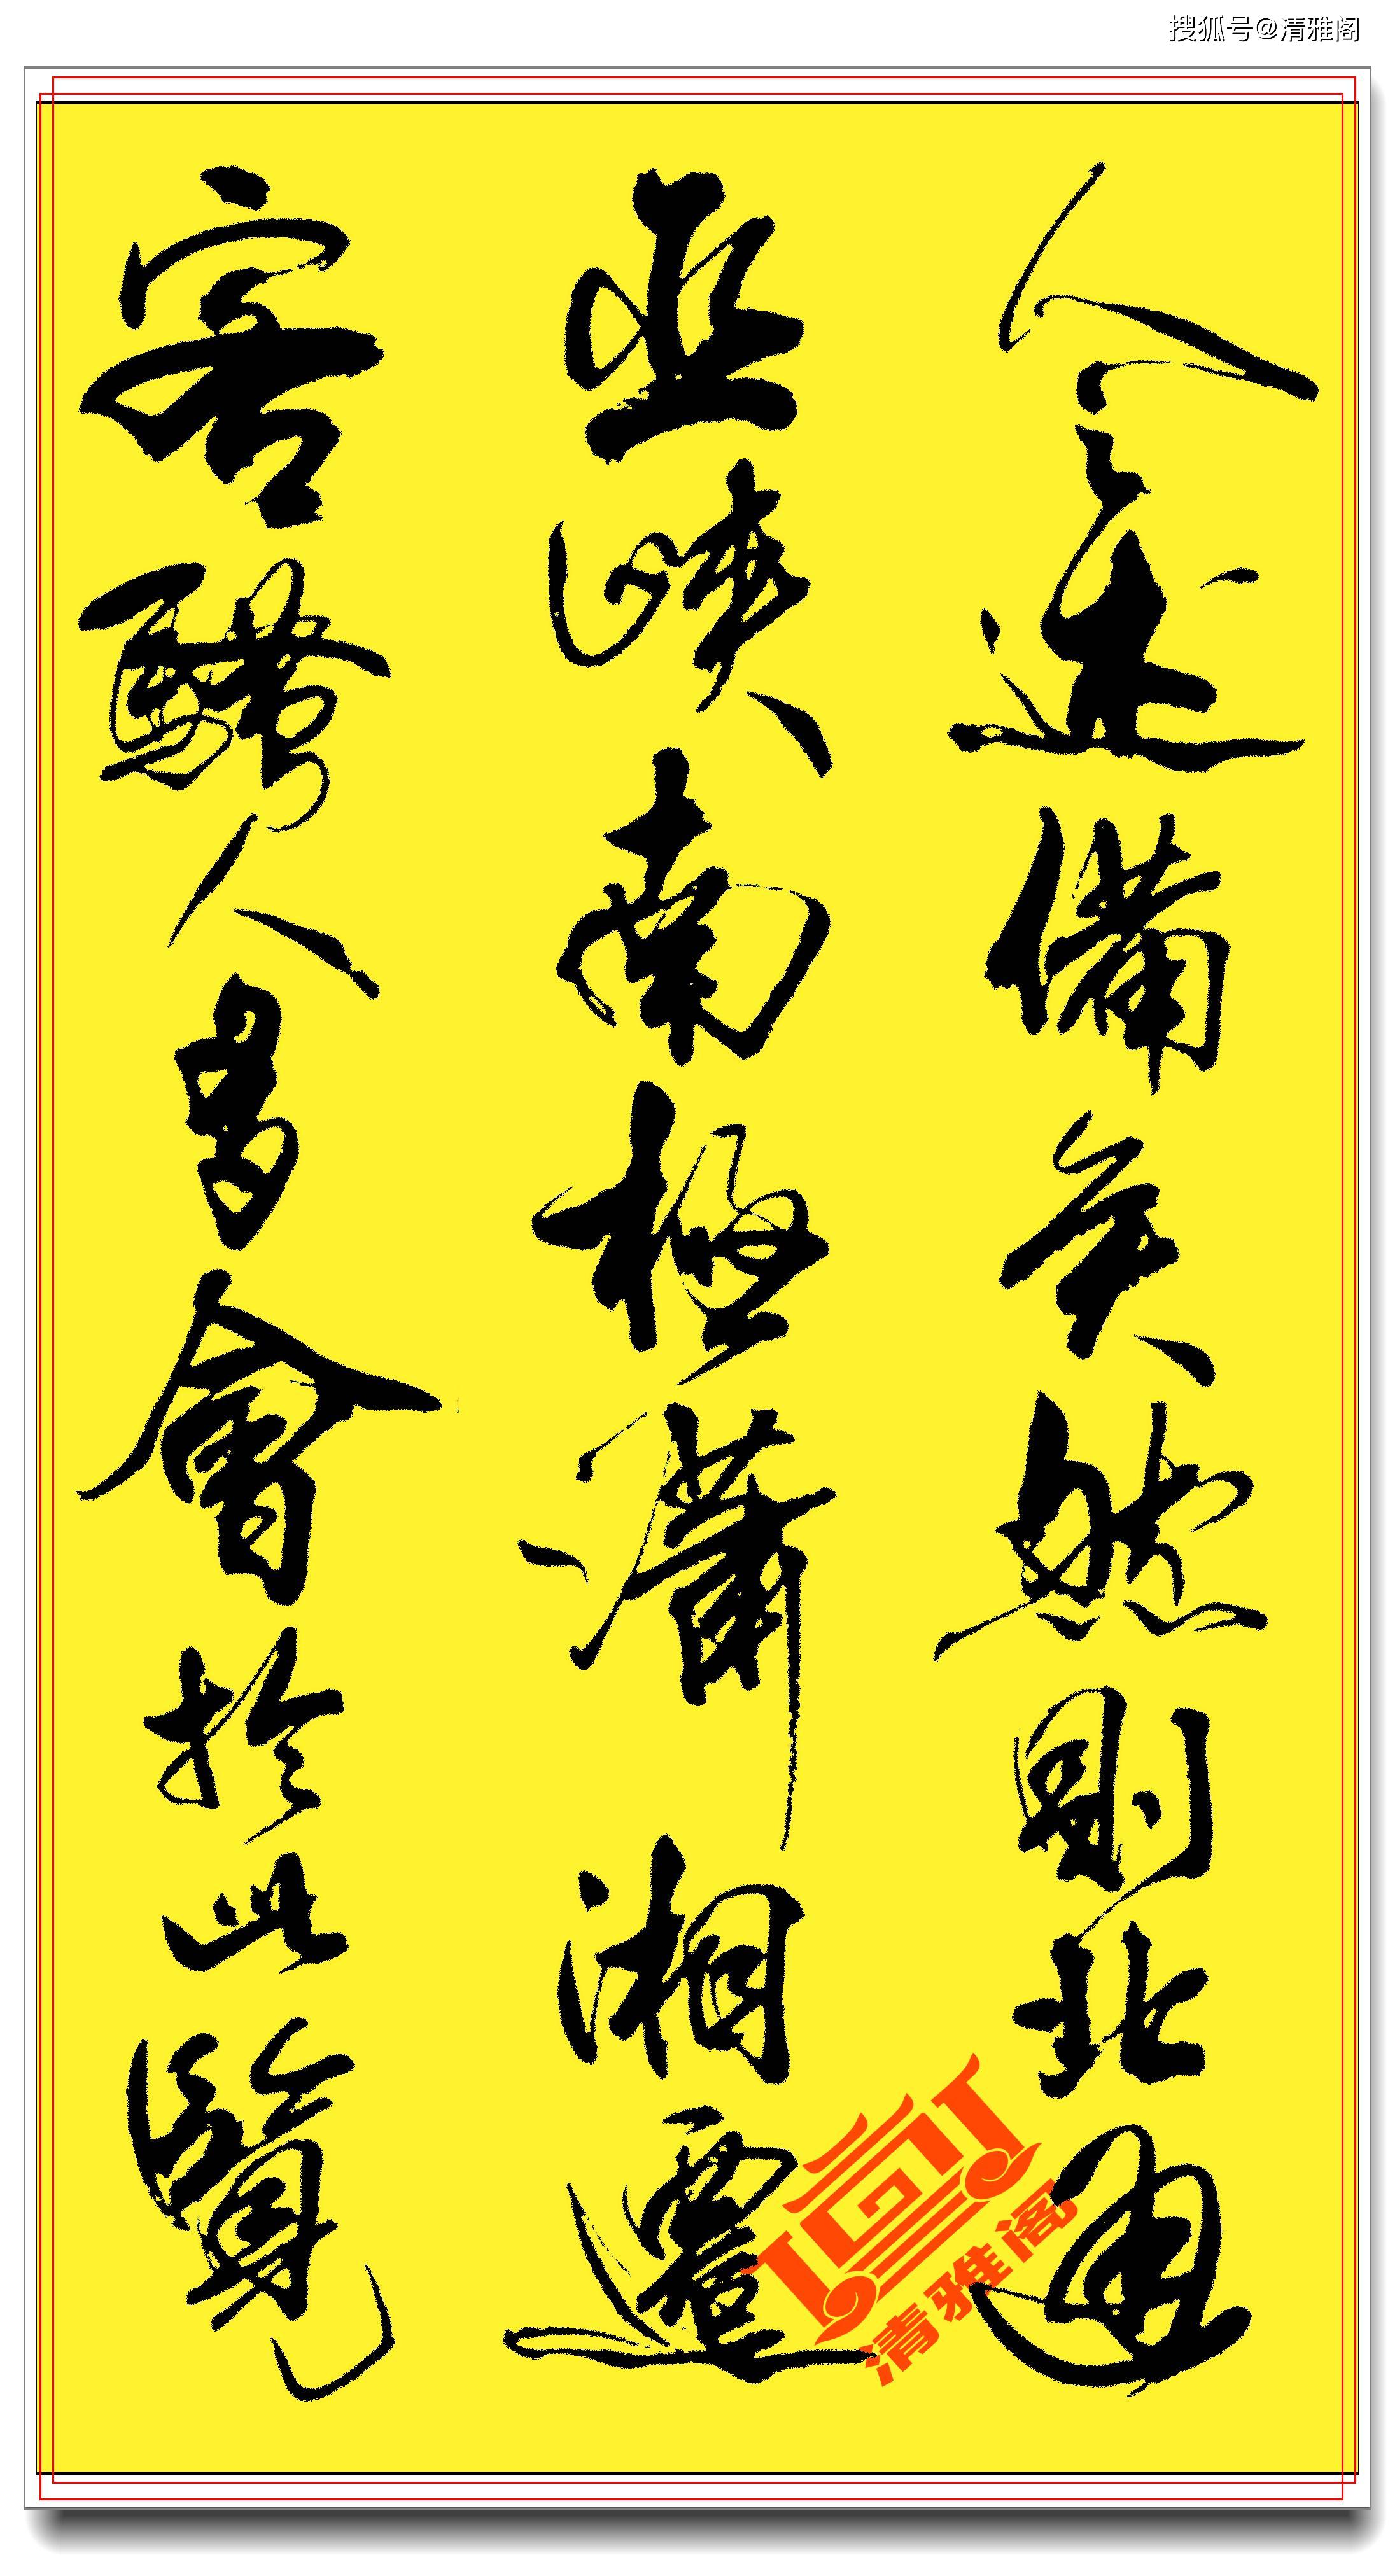 搜狐号@清雅阁
人之述備矣然則北通
巫峽南極瀟湘遷
客騷人多會於此覽
清雅阁